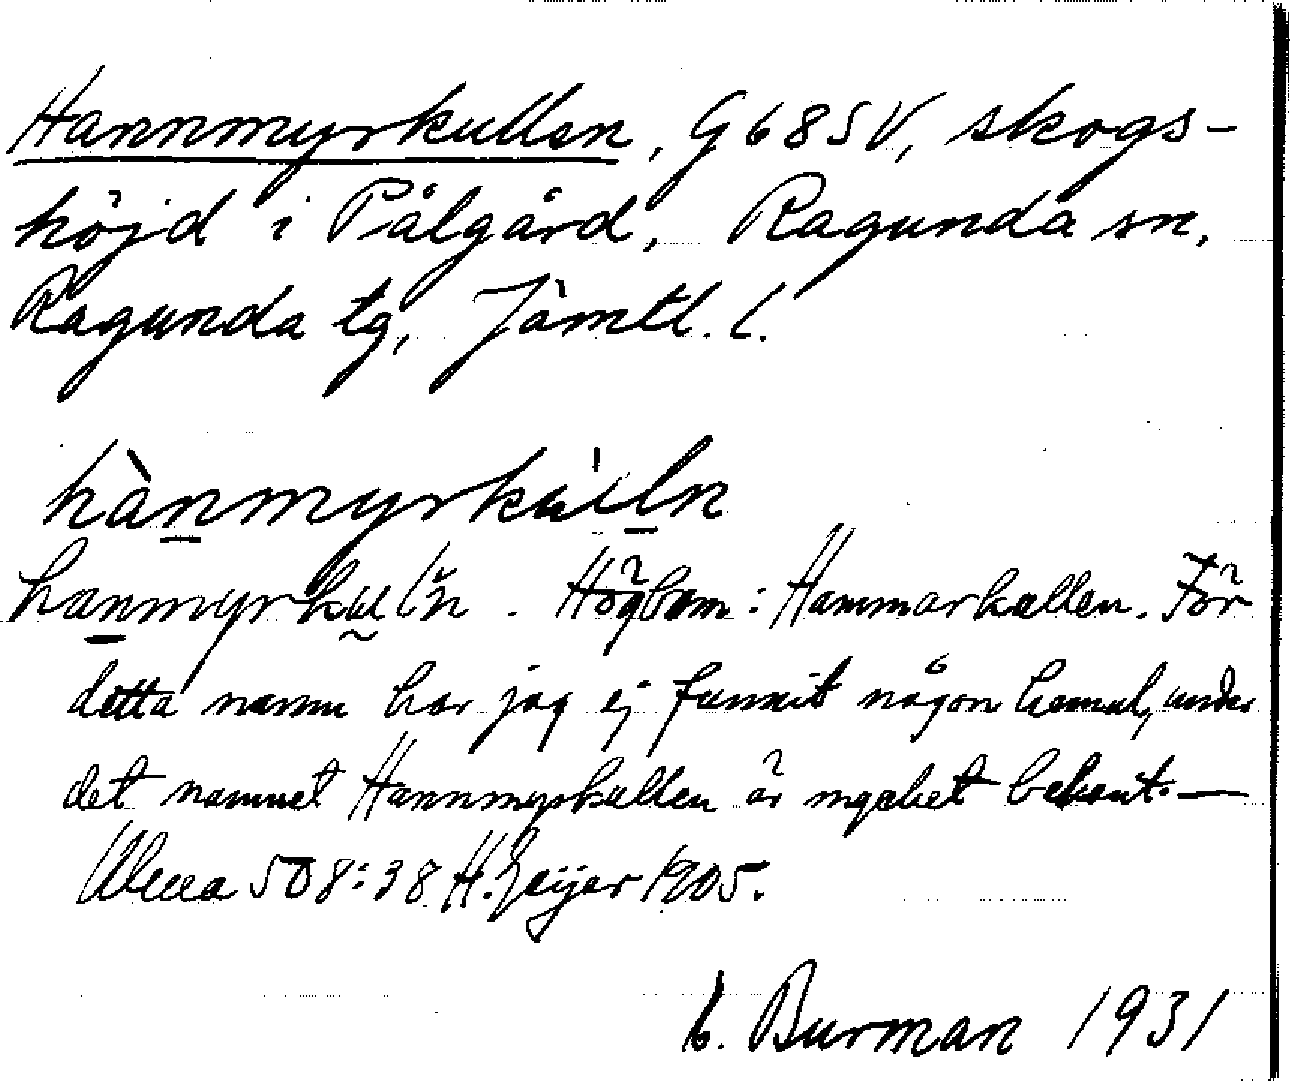 Hannmyrkullen, G 68 SV, skogs-
höjd i Pålgård, Ragunda sn,
Ragunda tg, Jämtl. l.
hànmyrkúlln
hanmyrkulln. Högbom: Hammarkullen. För
detta namn har jag ej funnit någon hemul, under
det namnet Hannmyrkullen är mycket bekant. —
Ulma 508:38 H. Geijer 1905.
Burman 1931